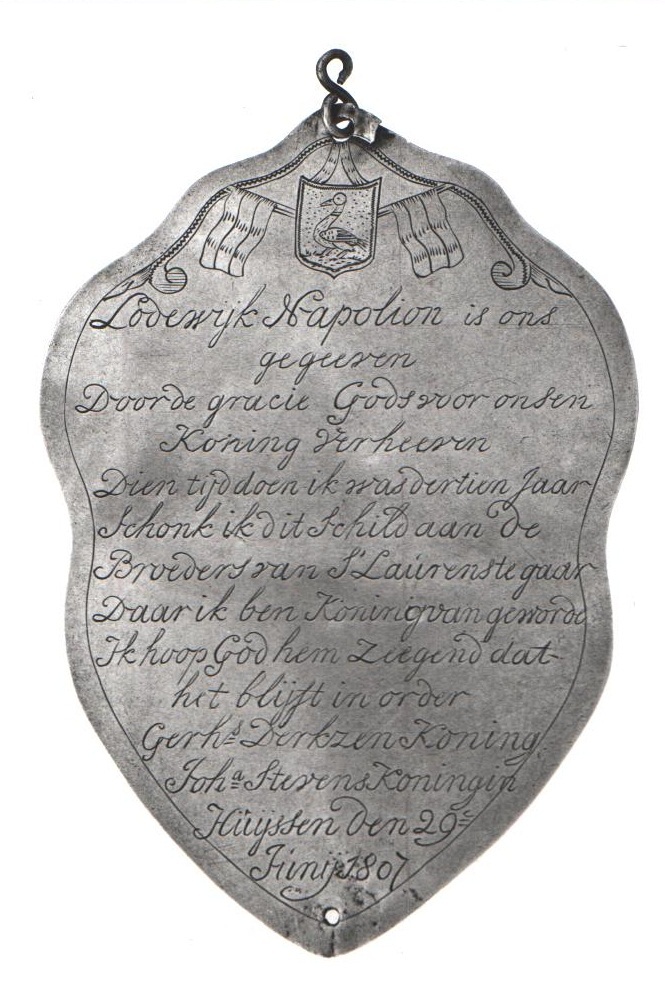 Lodewijk Napolion is ons
gegeeven
Doorde gracie Gods voor onsen
Koning verheeven
Dien tijd doen ik was dertien Jaar
Schonk ik dit Schild aan de
Broeders van St Laurens te gaar
Daar ik ben Koning van geworde
Ik hoop God hem Zeegend dat
het blijft in order
Gerhs Derkzen Koning
Joha Stevens Koningin
Hüijssen den 29e
Junij 1807